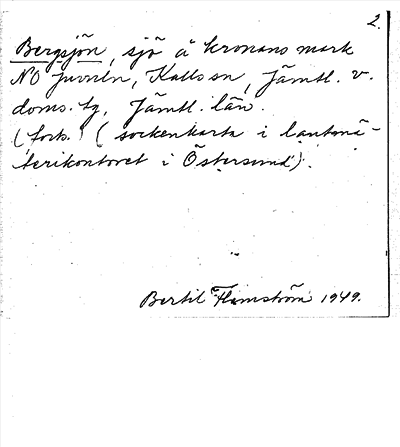 2.
Bergsjön, sjö å kronans mark
NO Juveln, Kalls sn, Jämtl. v.
doms. tg, Jämtl. län.
(forts.) (sockenkarta i lantmä-
terikontoret i Östersund).
Bertil Flemström 1949.